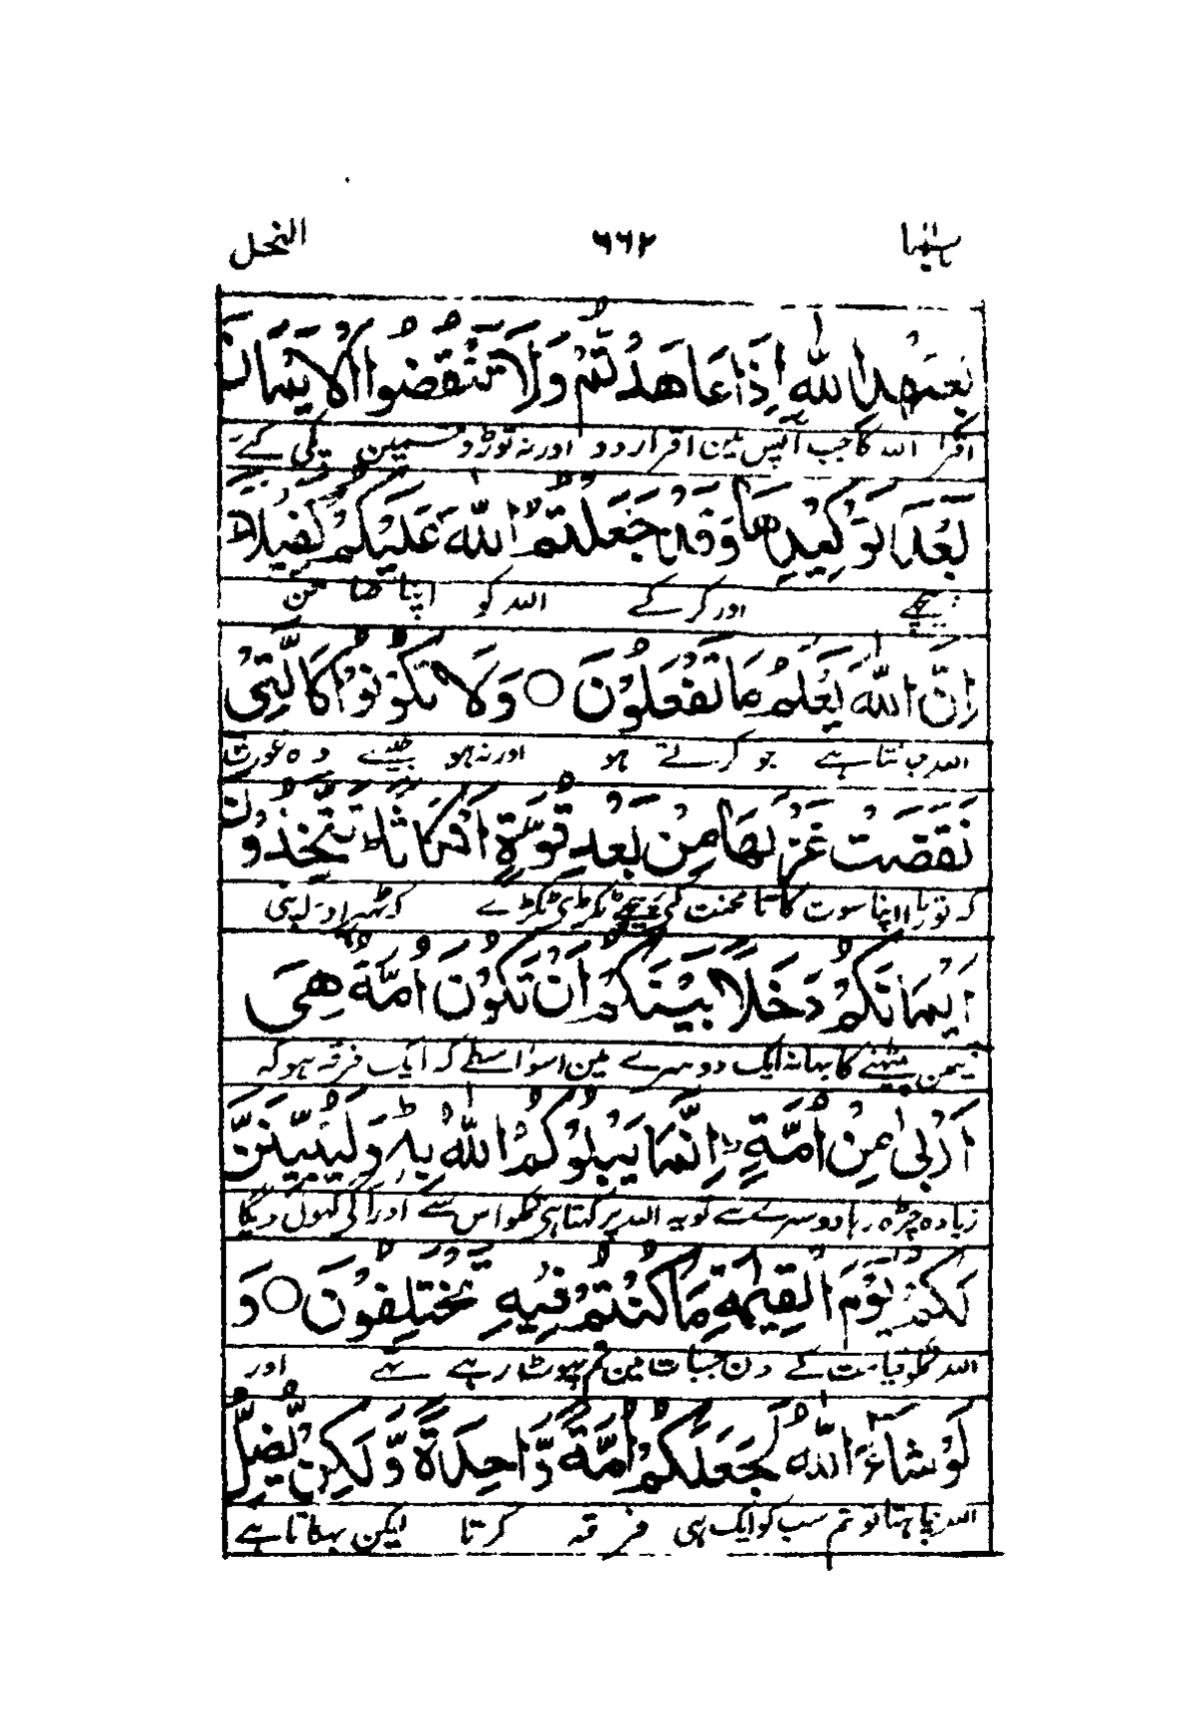 النحل ٦٦٢ ربما
بِعَهْدِ اللّٰهِ اِذَا عَاهَدْتُّمْ وَلَا تَنْقُضُوا الْاَيْمَانَ
اقرار الله كا جب آپس مین اقرار دو اور نہ توڑو قسمین پکی کئے
بَعْدَ تَوْكِيْدِهَا وَقَدْ جَعَلْتُمُ اللّٰهَ عَلَيْكُمْ كَفِيْلًا ؕ
پیچھے اور کر کے الله کو اپنا ضامن
اِنَّ اللّٰهَ يَعْلَمُ مَا تَفْعَلُوْنَ ○ وَلَا تَكُوْنُوْا كَالَّتِيْ
الله جانتا ہے جو کرتے ہو اور نہ ہو جیسے وہ عورت
نَقَضَتْ غَزْلَهَا مِنْ بَعْدِ قُوَّةٍ اَنْكَاثًا ؕ تَتَّخِذُوْنَ
کہ توڑا اپنا سوت کاتا محنت کی پیچھے ٹکڑی ٹکڑے کہ ٹھہراؤ اپنی
اَيْمَانَكُمْ دَخَلًا بَيْنَكُمْ اَنْ تَكُوْنَ اُمَّةٌ هِيَ
پیٹھنے کا بہانہ ایک دوسرے مین اسواسطے کہ ایک فرقہ ہو کہ
اَرْبٰى مِنْ اُمَّةٍ ؕ اِنَّمَا يَبْلُوْكُمُ اللّٰهُ بِهٖ ؕ وَلَيُبَيِّنَنَّ
زیادہ چڑہ رہا دوسرے سے تو یہ الله پرکہتا ہی تمکو اس سے اور آگی کہول دیگا
لَكُمْ يَوْمَ الْقِيٰمَةِ مَا كُنْتُمْ فِيْهِ تَخْتَلِفُوْنَ ○ وَ
الله تمکو قیامت کے دن جس بات مین تم پہوٹ رہے تھے اور
لَوْ شَآءَ اللّٰهُ لَجَعَلَكُمْ اُمَّةً وَّاحِدَةً وَّلٰكِنْ يُّضِلُّ
الله چاہتا تو تم سب کو ایک ہی فرقہ کرتا لیکن بہکاتا ہے